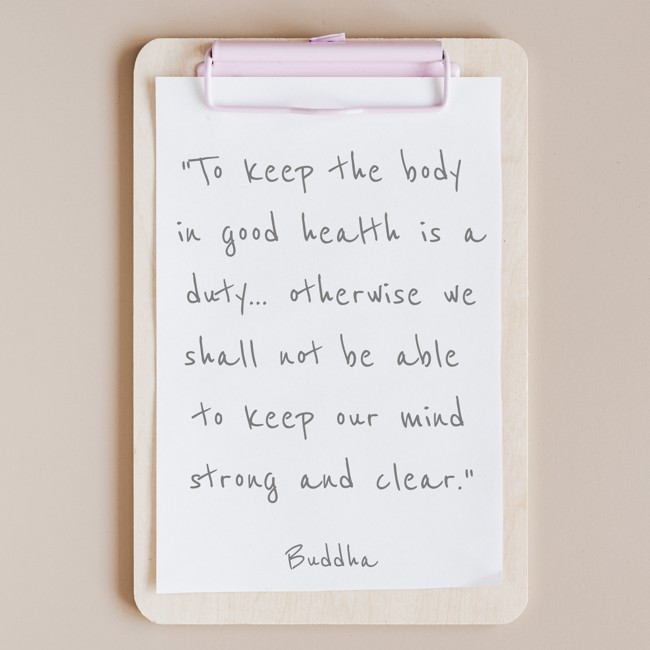 "To keep the body
in good health is a
duty... otherwise we
shall not be able
to keep our mind
strong and clear."
Buddha